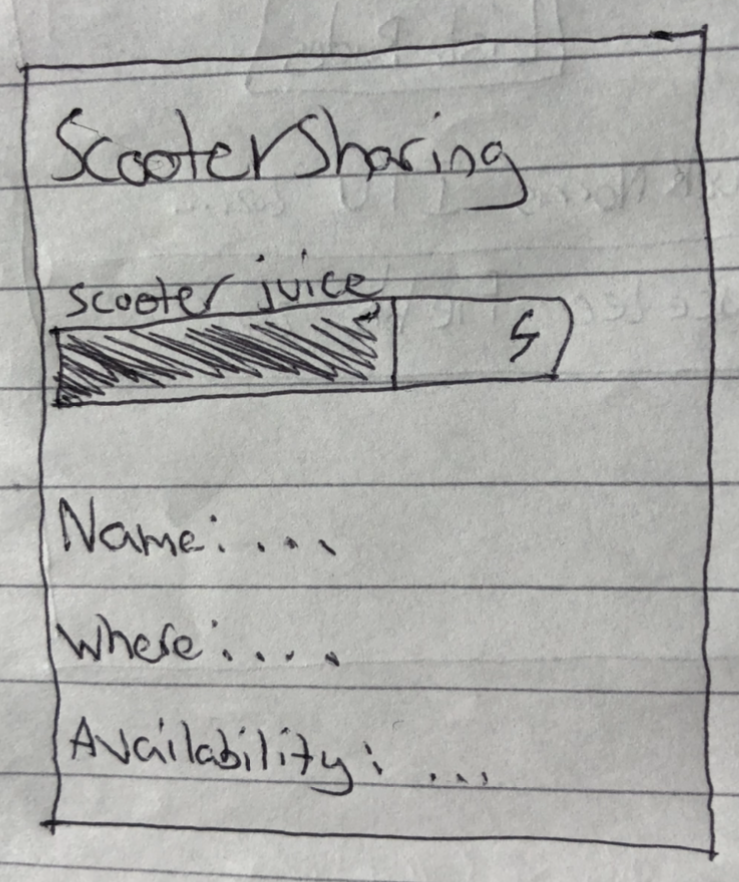 ScooterSharing
scooter juice
Name: ...
Where: ....
Availability: ...